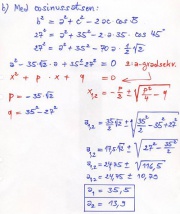 b) Med cosinussatsen:
b² = a² + c² - 2ac · cos B
27² = a² + 35² - 2·a·35 · cos 45°
27² = a² + 35² - 70·a · 1/2 √2
a² - 35√2 · a + 35² - 27² = 0
x² + p · x + q = 0 2:a-gradsekv.
p = -35·√2
q = 35² - 27²
x₁,₂ = -p/2 ± √(p²/4 - q)
a₁,₂ = 35√2/2 ± √(35²/2 - 35² + 27²)
a₁,₂ = 17,5√2 ± √(27² - 35²/2)
a₁,₂ = 24,75 ± √116,5
a₁,₂ = 24,75 ± 10,79
a₁ = 35,5
a₂ = 13,9